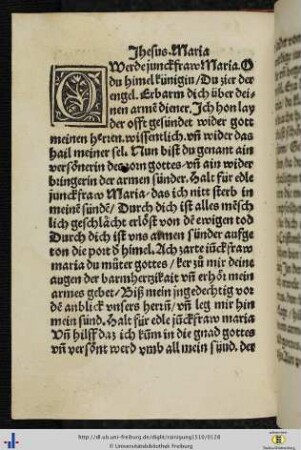 Jhesus. Maria
O Werde junckfraw Maria. O
du himel künigin/ Du zier der
engel. Erbarm dich über dei-
nen armē diener. Jch hon lay
der offt gesündet wider gott
meinen herren. wissentlich. vñ wider das
hail meiner sel. Nun bist du genant ain
versönerin des zorn gottes/ vñ ain wider
bringerin der armen sünder. Halt für edle
junckfraw Maria/ das ich nitt sterb in
meinē sündē/ Durch dich ist alles mēsch
lich geschlächt erlöst von dē ewigen tod
Durch dich ist vns armen sünder aufge
ton die port d' himel. Ach zarte jūckfraw
maria du müter gottes/ ker zü mir deine
augen der barmhertzikait vñ erhör mein
armes gebet/ Biß mein jngedechtig vor
dē anblick vnsers herrn/ vñ leg mir hin
mein sünd. Halt für edle jūckfraw maria
Vñ hilff daz ich kūm in die gnad gottes
vñ versönt werd vmb all mein sünd. der
http://dl.ub.uni-freiburg.de/diglit/nanigung1510/0128
© Universitätsbibliothek Freiburg